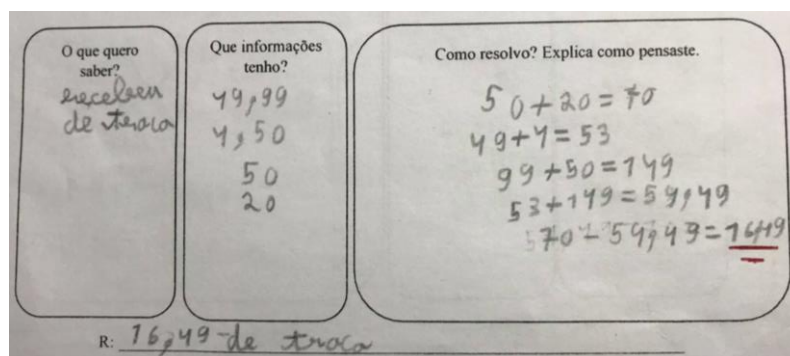 O que quero
saber?
receben
de troca
Que informações
tenho?
49,99
4,50
50
20
Como resolvo? Explica como pensaste.
50+20=70
49+4=53
99+50=149
53+149=54,49
70-54,49=16,49
R: 16,49 de troca